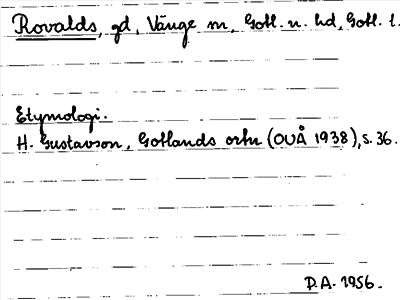 Rovalds, gd, Vänge sn, Gotl. n. hd, Gotl. l.
Etymologi.
H. Gustavson, Gotlands ortn (OUÅ 1938), s. 36.
D.A. 1956.